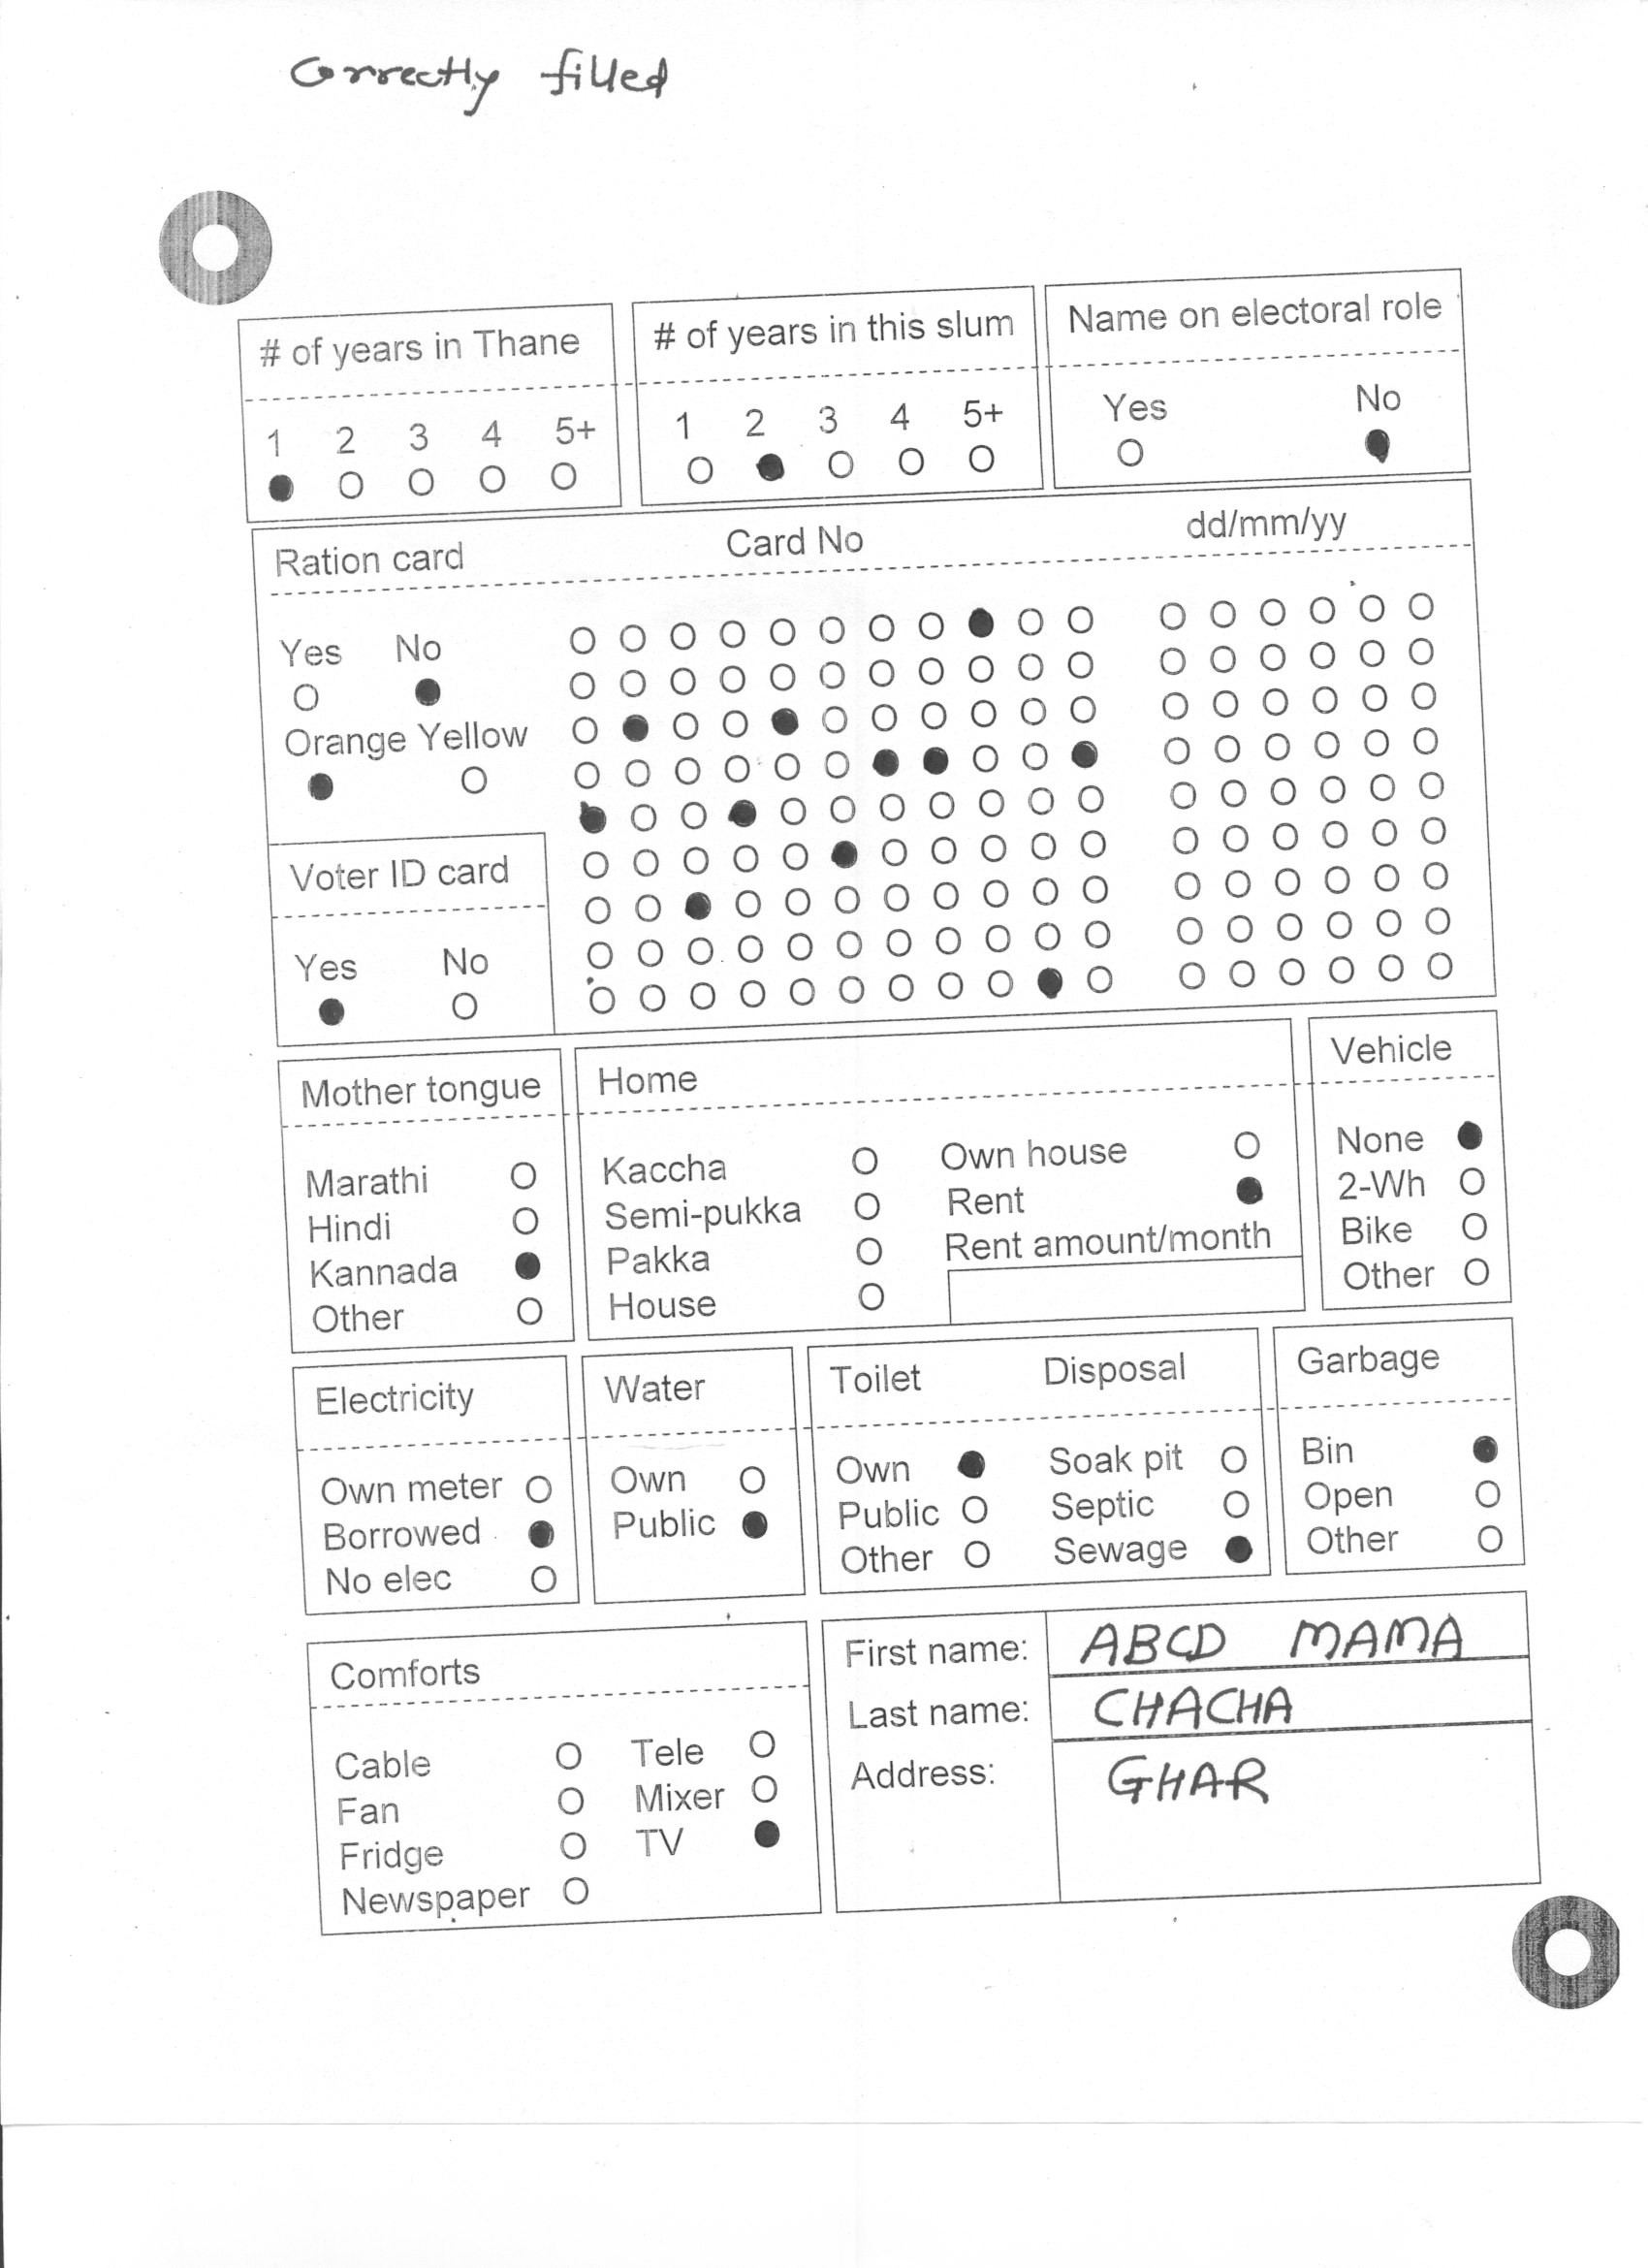 Correctly filled
# of years in Thane
1 2 3 4 5+
# of years in this slum
1 2 3 4 5+
Name on electoral role
Yes No
Ration card Card No dd/mm/yy
Yes No
Orange Yellow
Voter ID card
Yes No
Mother tongue
Marathi
Hindi
Kannada
Other
Home
Kaccha
Semi-pukka
Pakka
House
Own house
Rent
Rent amount/month
Vehicle
None
2-Wh
Bike
Other
Electricity
Own meter
Borrowed
No elec
Water
Own
Public
Toilet Disposal
Own Soak pit
Public Septic
Other Sewage
Garbage
Bin
Open
Other
Comforts
Cable
Fan
Fridge
Newspaper
Tele
Mixer
TV
First name: ABCD MAMA
Last name: CHACHA
Address: GHAR